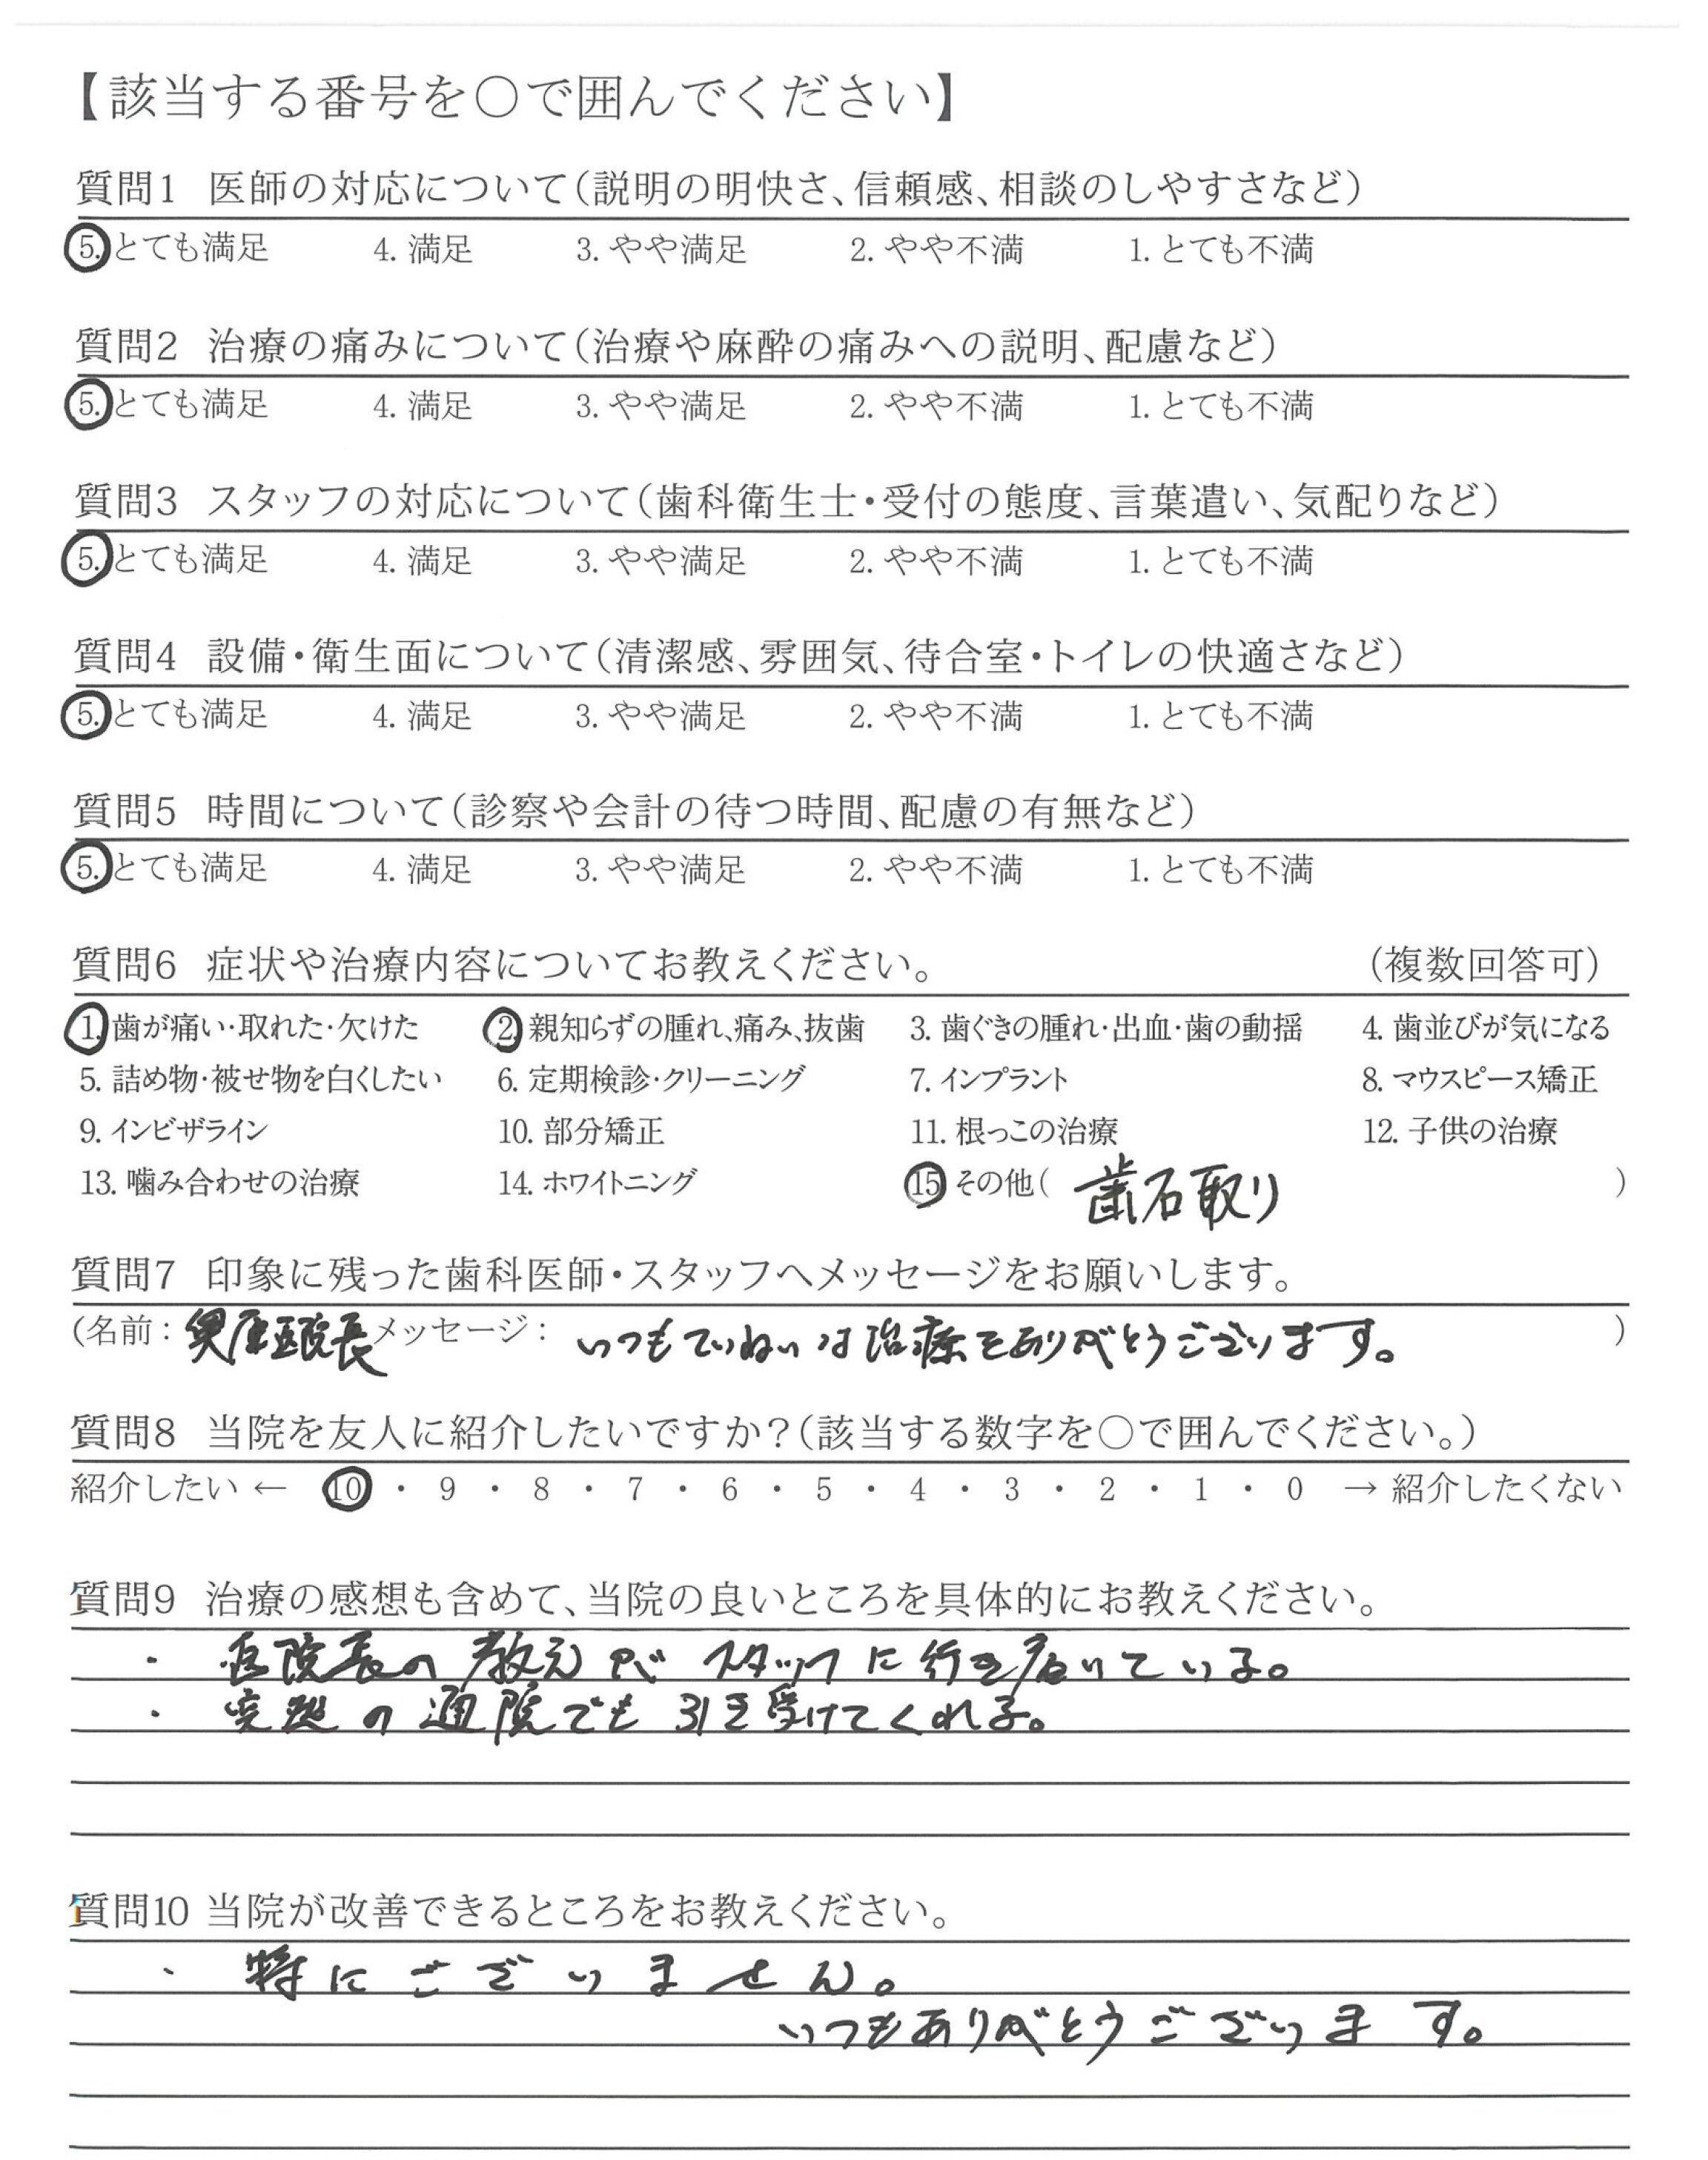 【該当する番号を○で囲んでください】
質問1 医師の対応について(説明の明快さ、信頼感、相談のしやすさなど)
5. とても満足 4. 満足 3. やや満足 2. やや不満 1. とても不満
質問2 治療の痛みについて(治療や麻酔の痛みへの説明、配慮など)
5. とても満足 4. 満足 3. やや満足 2. やや不満 1. とても不満
質問3 スタッフの対応について(歯科衛生士・受付の態度、言葉遣い、気配りなど)
5. とても満足 4. 満足 3. やや満足 2. やや不満 1. とても不満
質問4 設備・衛生面について(清潔感、雰囲気、待合室・トイレの快適さなど)
5. とても満足 4. 満足 3. やや満足 2. やや不満 1. とても不満
質問5 時間について(診察や会計の待つ時間、配慮の有無など)
5. とても満足 4. 満足 3. やや満足 2. やや不満 1. とても不満
質問6 症状や治療内容についてお教えください。 (複数回答可)
1. 歯が痛い・取れた・欠けた 2. 親知らずの腫れ、痛み、抜歯 3. 歯ぐきの腫れ・出血・歯の動揺 4. 歯並びが気になる
5. 詰め物・被せ物を白くしたい 6. 定期検診・クリーニング 7. インプラント 8. マウスピース矯正
9. インビザライン 10. 部分矯正 11. 根っこの治療 12. 子供の治療
13. 噛み合わせの治療 14. ホワイトニング 15 その他( 歯石取り )
質問7 印象に残った歯科医師・スタッフへメッセージをお願いします。
(名前: 医院長 メッセージ: いつもていねいな治療をありがとうございます。 )
質問8 当院を友人に紹介したいですか?(該当する数字を○で囲んでください。)
紹介したい ← 10 ・ 9 ・ 8 ・ 7 ・ 6 ・ 5 ・ 4 ・ 3 ・ 2 ・ 1 ・ 0 → 紹介したくない
質問9 治療の感想も含めて、当院の良いところを具体的にお教えください。
・ 医院長の教えがスタッフに行き届いている。
・ 突然の通院でも引き受けてくれる。
質問10 当院が改善できるところをお教えください。
・ 特にございません。
いつもありがとうございます。